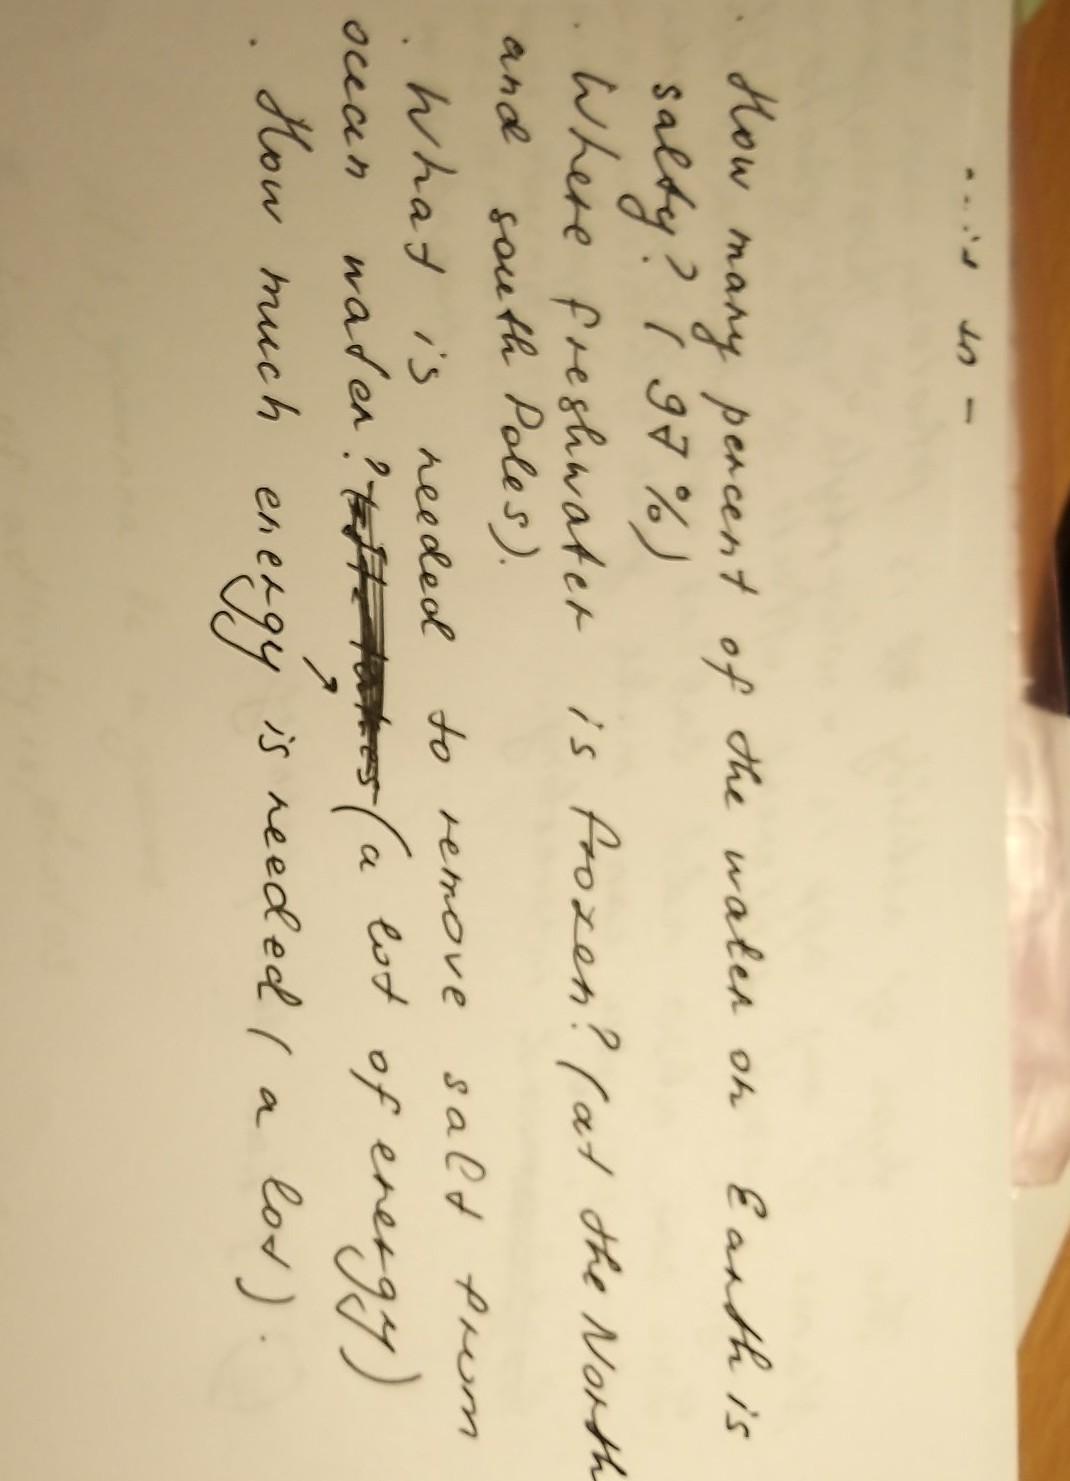 . How many percent of the water on Earth is
salty? (97%)
. Where freshwater is frozen? (at the North
and south Poles).
. What is needed to remove salt from
ocean water? (a lot of energy)
. How much energy is needed (a lot).